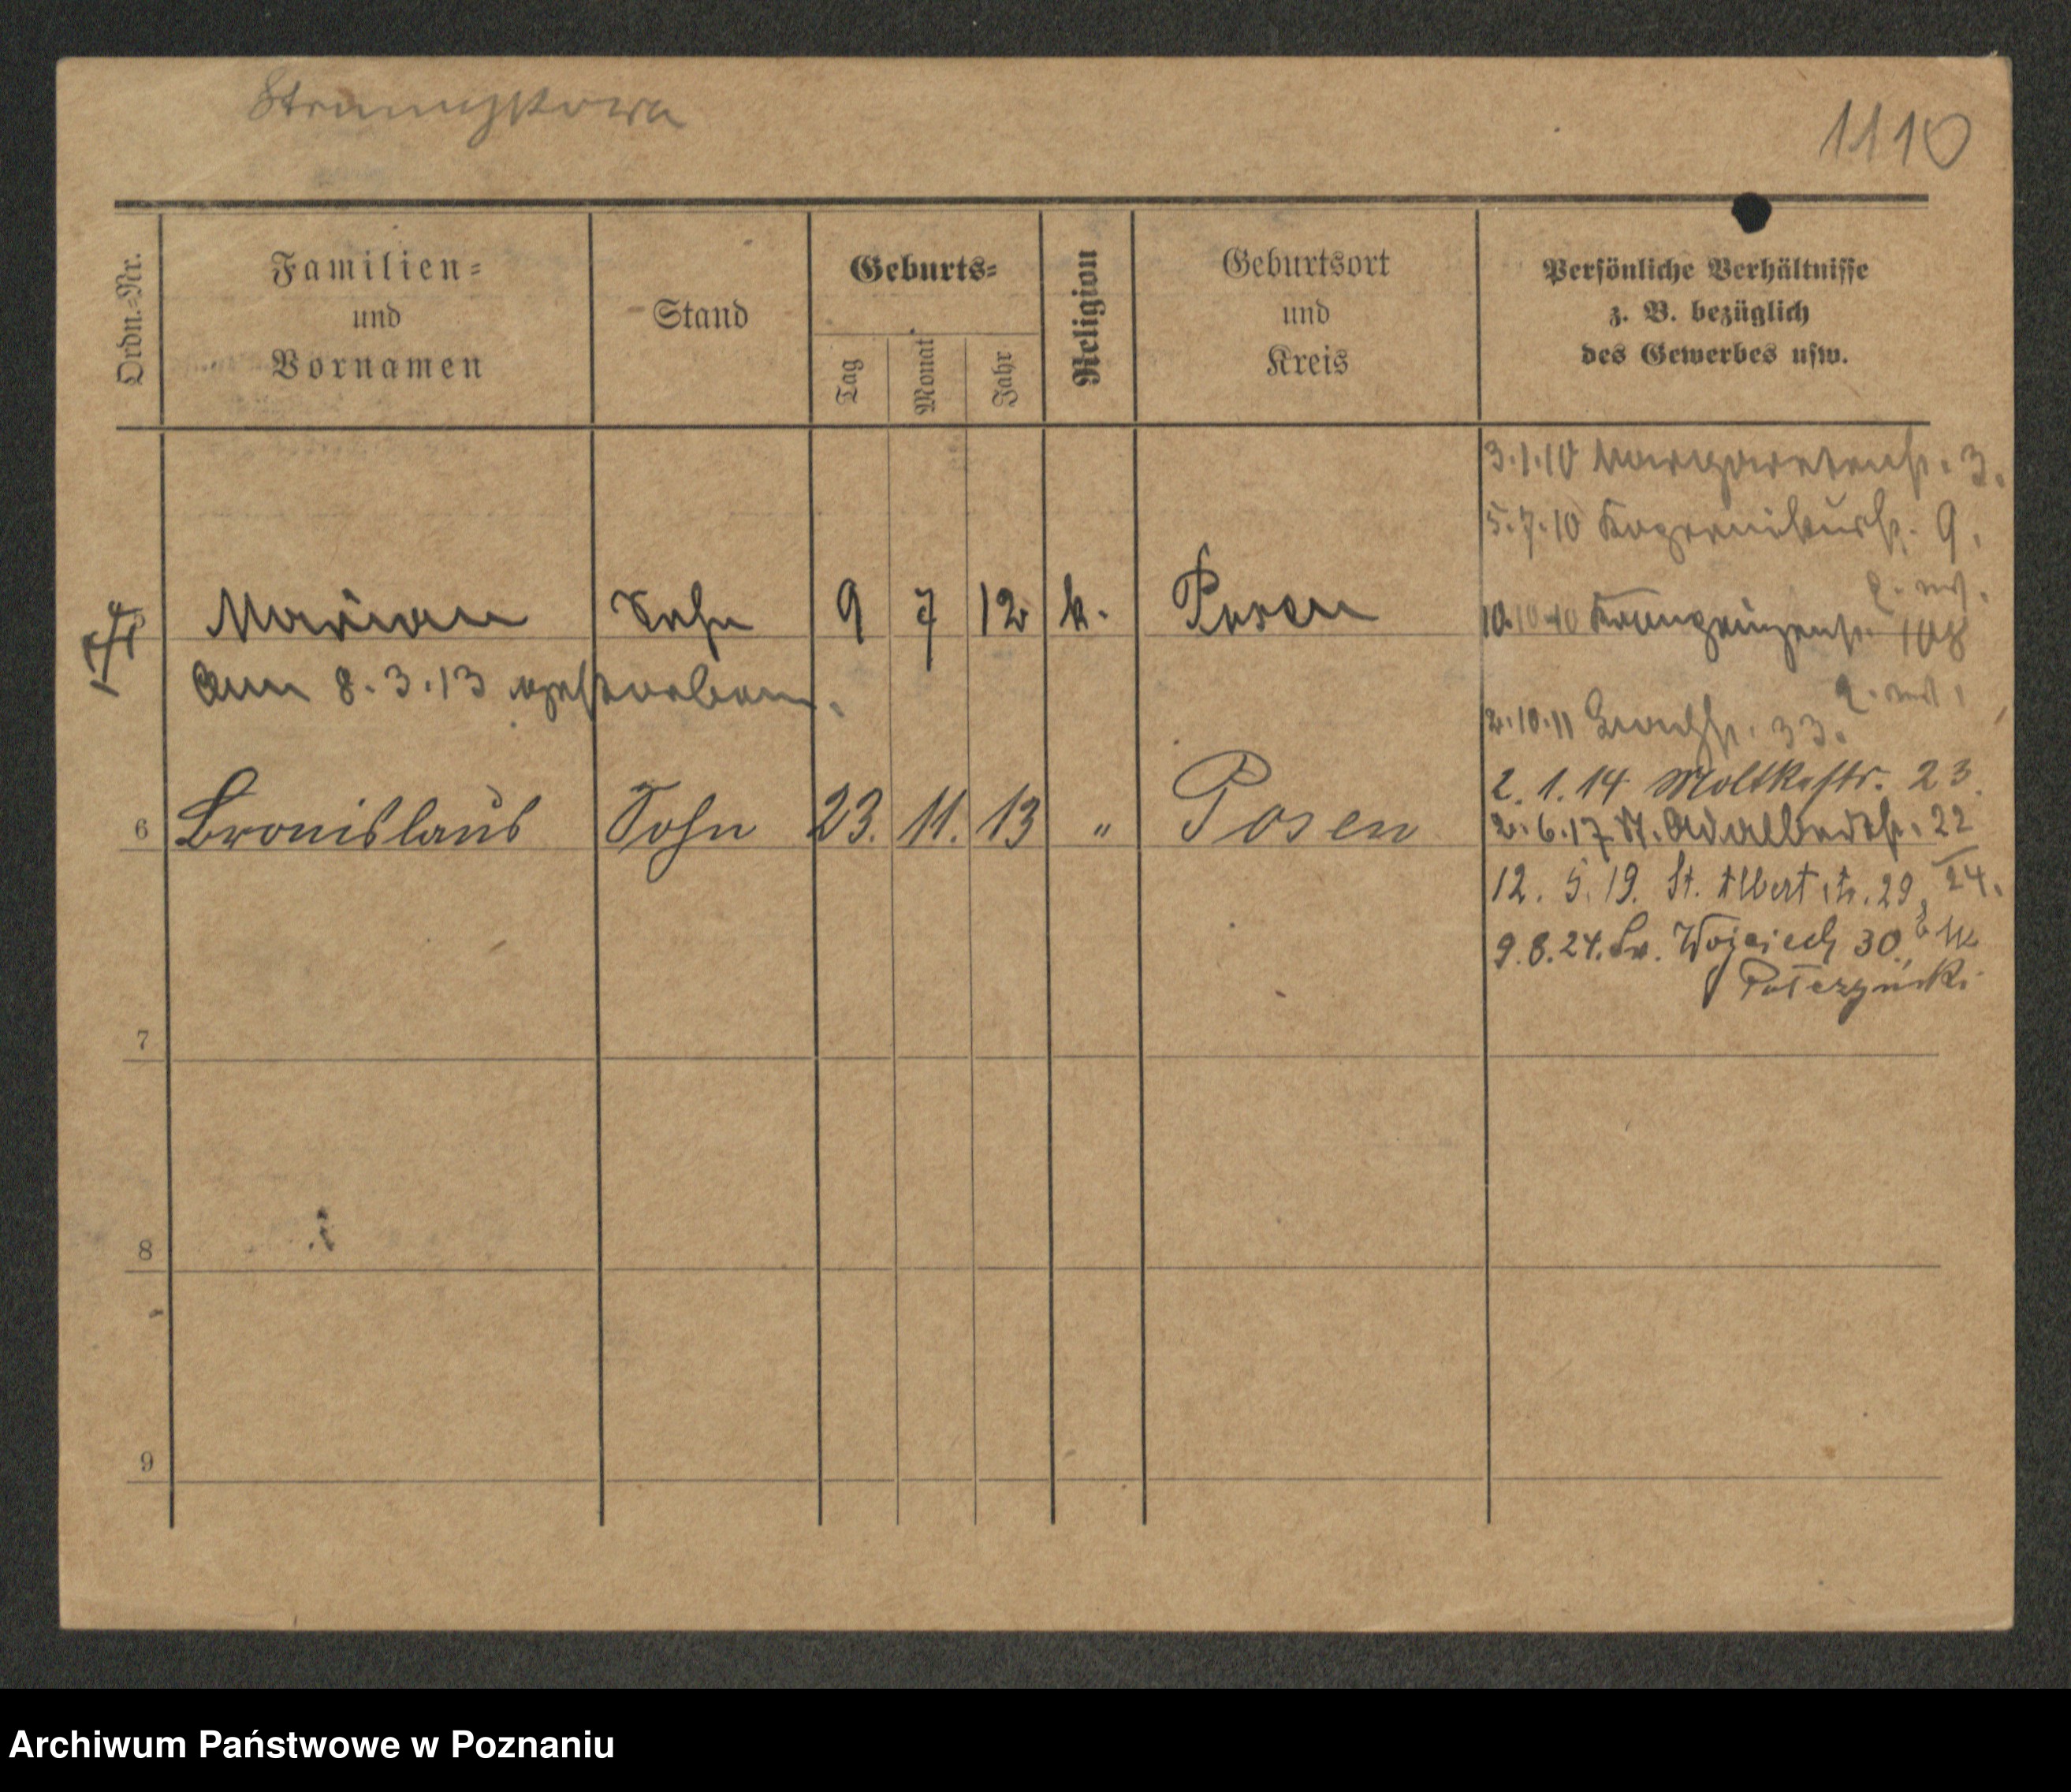 1110
Ordn.-Nr.
Familien-
und
Vornamen
Stand
Geburts-
Tag
Monat
Jahr
Religion
Geburtsort
und
Kreis
Persönliche Verhältnisse
z. B. bezüglich
des Gewerbes usw.
3.1.10 Margaretenstr. 3.
5.7.10 Kopernikusstr. 9.
Marian Sohn 9 7 12 k. Posen
10.10.10 Kronprinzenstr. 108
am 8.3.13 gestorben.
2.10.11 33.
2.1.14 Moltkestr. 23.
6 Bronislaus Sohn 23. 11. 13 " Posen
2.6.17 St. Adalbertstr. 22
24.
12. 5. 19. St. Albertstr. 29,
9.8.24. Św. Wojciech 30
7
8
9
Archiwum Państwowe w Poznaniu